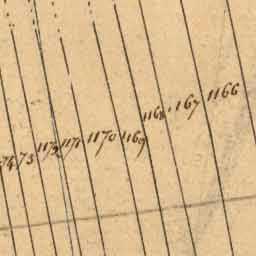 1173 1171 1170 1169 1168 1167 1166